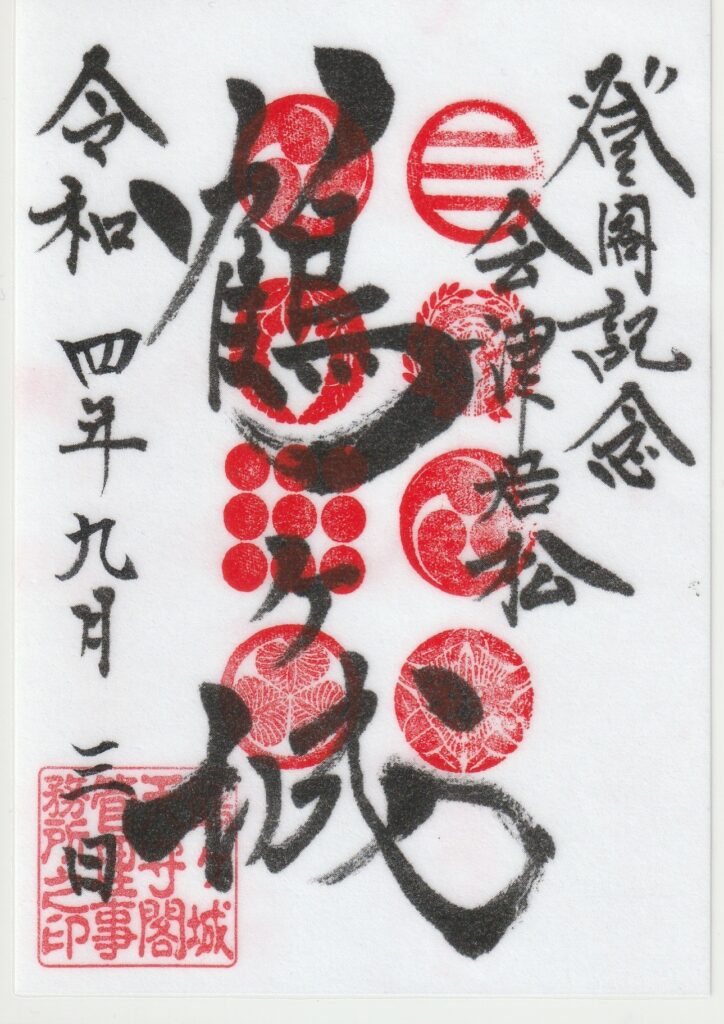 登閣記念
会津若松
鶴ヶ城
令和四年九月三日
鶴ヶ城
天守閣
管理事
務所之印